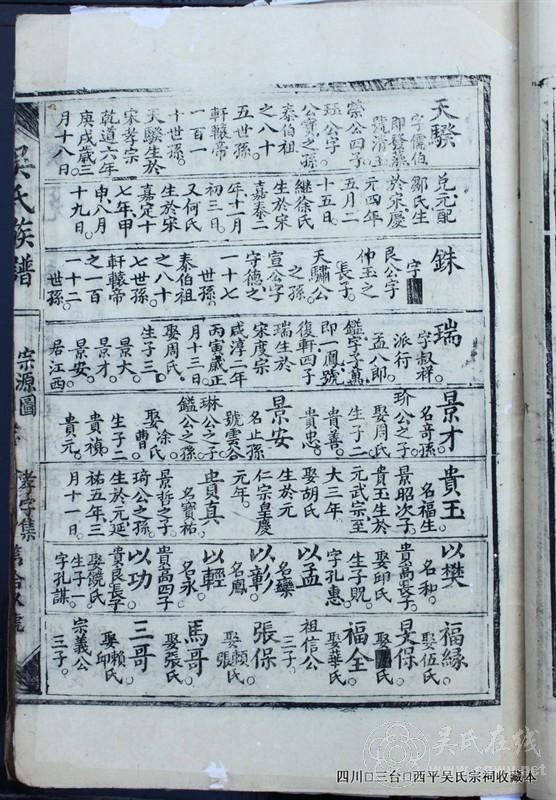 天騤
字儒伯
即發燕
號清玉
榮公四子
珏公字
公寶之孫
泰伯祖
之八十
五世孫
軒轅帝
一百一
十世孫
天騤生於
宋孝宗
乾道六年
庚戌歲三
月十八日
兌元配
鄒氏生
於宋慶
元四年
五月二
十五日
繼徐氏
生於宋
嘉泰二
年十一月
初三日
又何氏
生於宋
嘉定十
七年甲
申八月
十九日
銖
字
艮公字
仲玉之
長子
天驌公
之孫
宣公字
守德之
一十七
世孫
泰伯祖
之八十
七世孫
軒轅帝
之一百
一十二
世孫
瑞
字叔祥
派行
孟八郎
鎰字子萬
即一鳳號
復軒四子
瑞生於
宋度宗
咸淳二年
丙寅歲正
月十三日
娶周氏
生子三
景大
景才
景安
居江西
景才
名奇孫
玠公之子
娶周氏
生子二
貴善
貴忠
景安
名止孫
號雲谷
琳公之子
鎰公之孫
娶涂氏
曹
生子二
貴禎
貴元
貴玉
名福生
景昭次子
貴玉生於
元武宗至
大三年
娶胡氏
生於元
仁宗皇慶
元年
貴真
名寶祐
景哲之子
琦公之孫
生於元延
祐五年三
月十一日
以樊
名和
貴嵩長子
娶邱氏
生子覞
字孔惠
以孟
名欒
以彰
名鳳
以輕
名永
貴高四子
以功
貴良長子
娶饒氏
生子一
字孔謀
福緣
娶伍氏
旻保
娶氏
福全
娶華氏
祖信公
三子
張保
娶賴氏
張
馬哥
娶張氏
三哥
娶賴氏
邱
宗義公
三子
吳氏族譜
宗源圖
孝字集
吴氏在线
四川□三台□西平吴氏宗祠收藏本